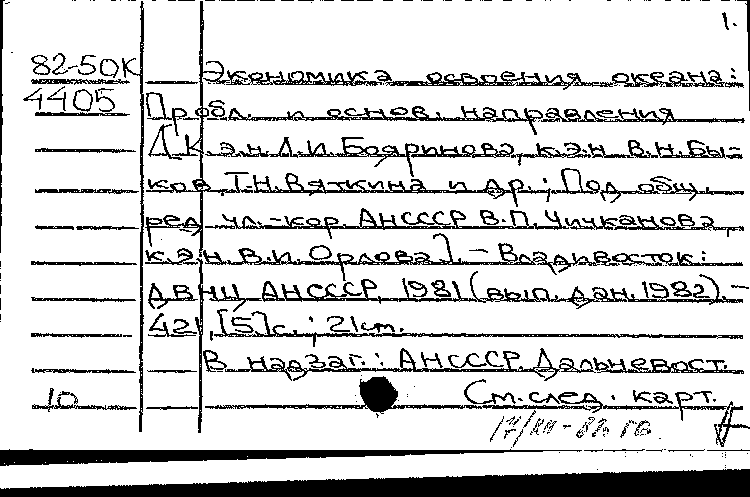 1.
82-50К Экономика освоения океана:
4405 Пробл. и основ. направления
[К.э.н. Л.И. Бояринова, к.э.н В.Н. Бы-
ков, Т.Н. Вяткина и др.; Под общ.
ред чл.-кор. АНСССР В.П. Чичканова,
к.э.н. В.И. Орлова]. - Владивосток:
ДВНЦ АНСССР, 1981 (вып. дан. 1982). -
421, [5] с.; 21 см.
В надзаг.: АНСССР. Дальневост.
10 См. след. карт.